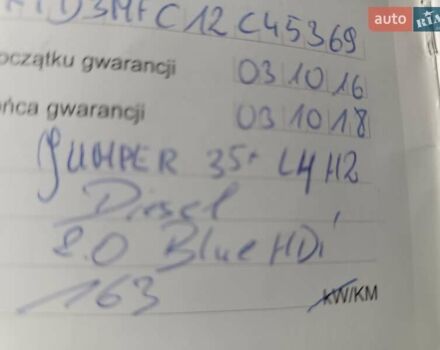 auto RIA
D3MFC12C45369
początku gwarancji 03 10 16
ońca gwarancji 03 10 18
JUMPER 35+ L4H2
Diesel
2.0 BlueHDi
163 kW/KM